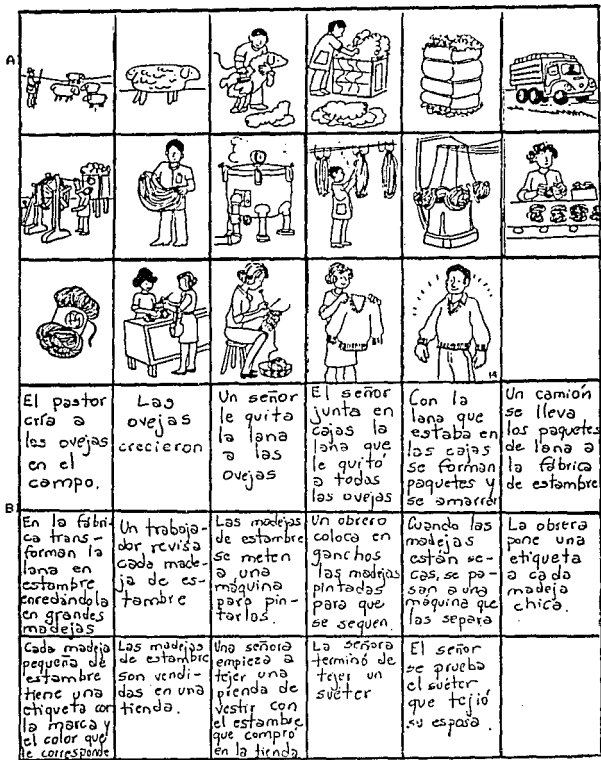 A)
14
El pastor
cría a
las ovejas
en el
campo.
Las
ovejas
crecieron
Un señor
le quita
la lana
a las
ovejas
El señor
junta en
cajas la
lana que
le quitó
a todas
las ovejas
Con la
lana que
estaba en
las cajas
se forman
paquetes y
se amarran
Un camión
se lleva
los paquetes
de lana a
la fábrica
de estambre
B)
En la fábri-
ca trans-
forman la
lana en
estambre
enredándola
en grandes
madejas
Un trabaja-
dor revisa
cada made-
ja de es-
tambre
Las madejas
de estambre
se meten
a una
máquina
para pin-
tarlas.
Un obrero
coloca en
ganchos
las madejas
pintadas
para que
se sequen.
Cuando las
madejas
están se-
cas, se pa-
san a una
máquina que
las separa
La obrera
pone una
etiqueta
a cada
madeja
chica.
Cada madeja
pequeña de
estambre
tiene una
etiqueta con
la marca y
el color que
le corresponde
Las madejas
de estambre
son vendi-
das en una
tienda.
Una señora
empieza a
tejer una
prenda de
vestir con
el estambre
que compró
en la tienda
La señora
terminó de
tejer un
suéter
El señor
se prueba
el suéter
que tejió
su esposa.